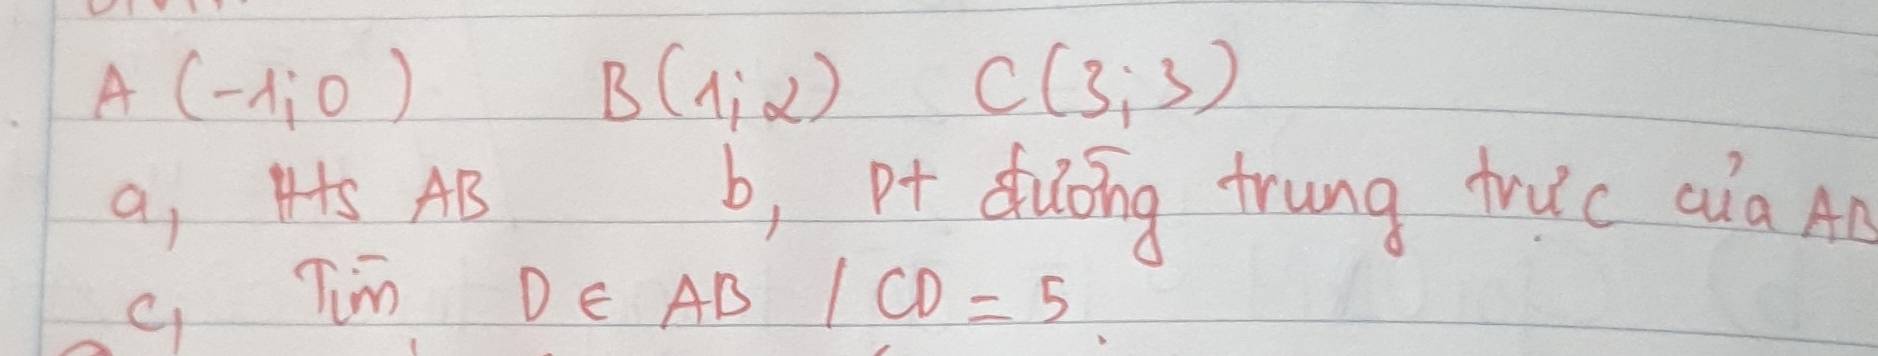 A (-1; 0) B(1; 2) C(3; 3)
a, ptts AB b, pt đường trung trực của AB
c, Tìm D ∈ AB / CD = 5.